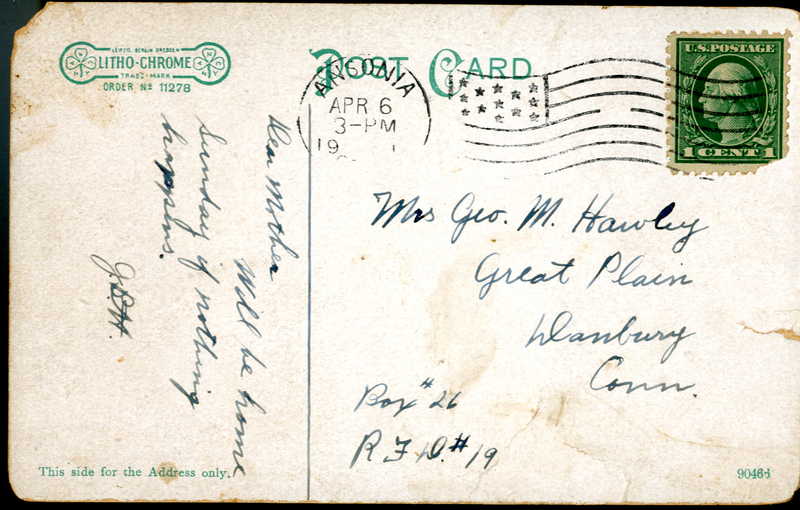 LEIPZIG BERLIN DRESDEN
LITHO-CHROME
N Y
N Y
TRADE-MARK
ORDER Nº 11278
POST CARD
ANSONIA
APR 6
3-PM
19
U.S.POSTAGE
1 CENT 1
Dear Mother
Will be home
Sunday if nothing
happins.
Mrs Geo. M. Hawley
Great Plain
Danbury
Conn.
Box #26
R F D. #19
This side for the Address only.